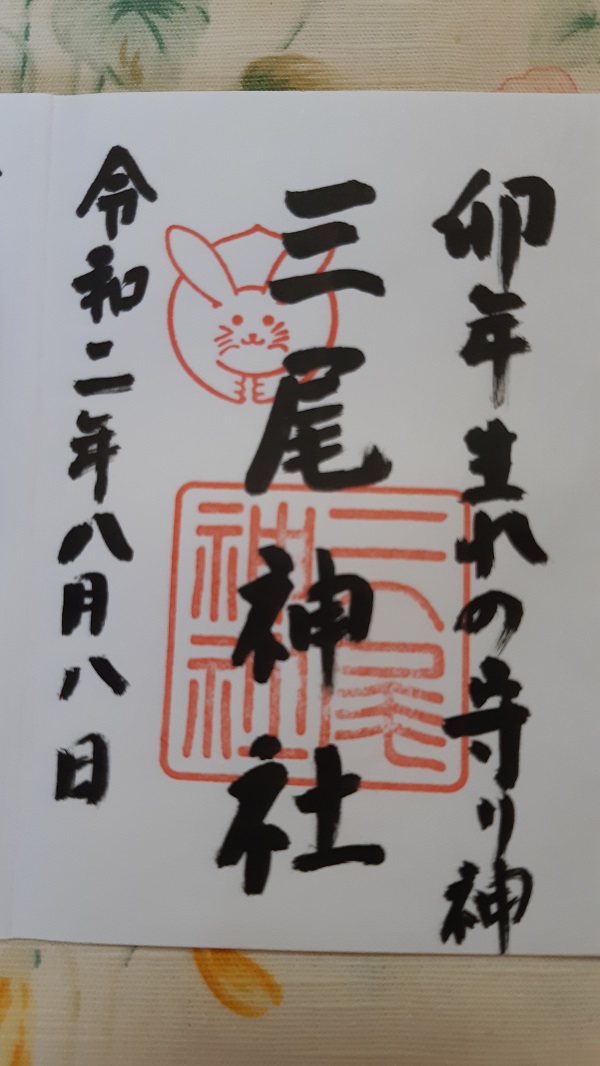 卯年生れの守り神
三尾神社
三尾神社
令和二年八月八日